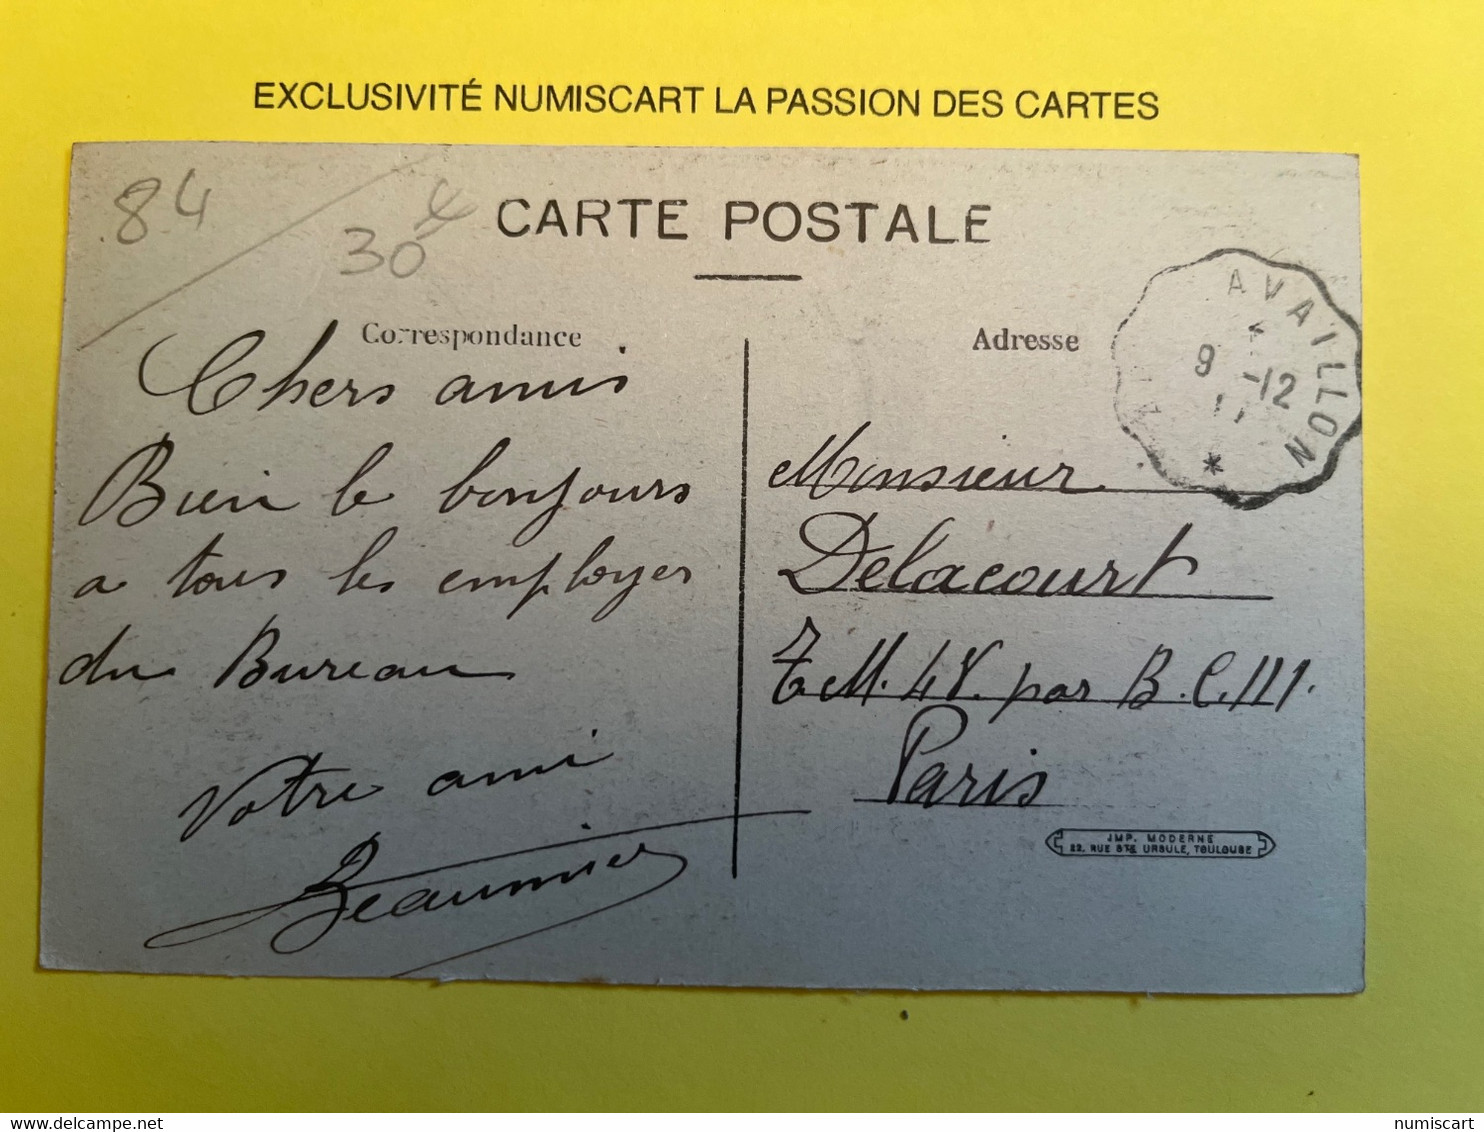 EXCLUSIVITÉ NUMISCART LA PASSION DES CARTES
84
30€
CARTE POSTALE
Correspondance
Adresse
AVAILLON
9 -12
17
*
Chers amis
Bien le bonjours
a tous les employer
du Bureau
Votre ami
Beaumier
Monsieur
Delacourt
T M. 4V. par B.C.M.
Paris
IMP. MODERNE
22, RUE STE URSULE, TOULOUSE
numiscart